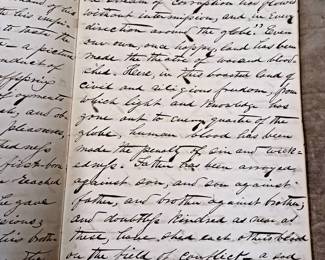 of his
his empir
to taste the
a pictur
onduct of
offspring
ployments
ch, and ob
pleasures,
edness
first-born
Reached
he gave
sions;
his brother
Corruption has flowed
without intermission, and in every
direction around the globe." Even
our own, once happy, land has been
made the theatre of war and bloo-
shed. Here, in this boasted land of
civil and religious freedom, from
which light and knowledge has
gone out to every quarter of the
globe, human blood has been
made the penalty of sin and wick-
edness. Father has been arrayed
against son, and son against
father, and brother against brother;
and doubtless kindred as near as
these, have shed each other's blood
on the field of conflict, a sad